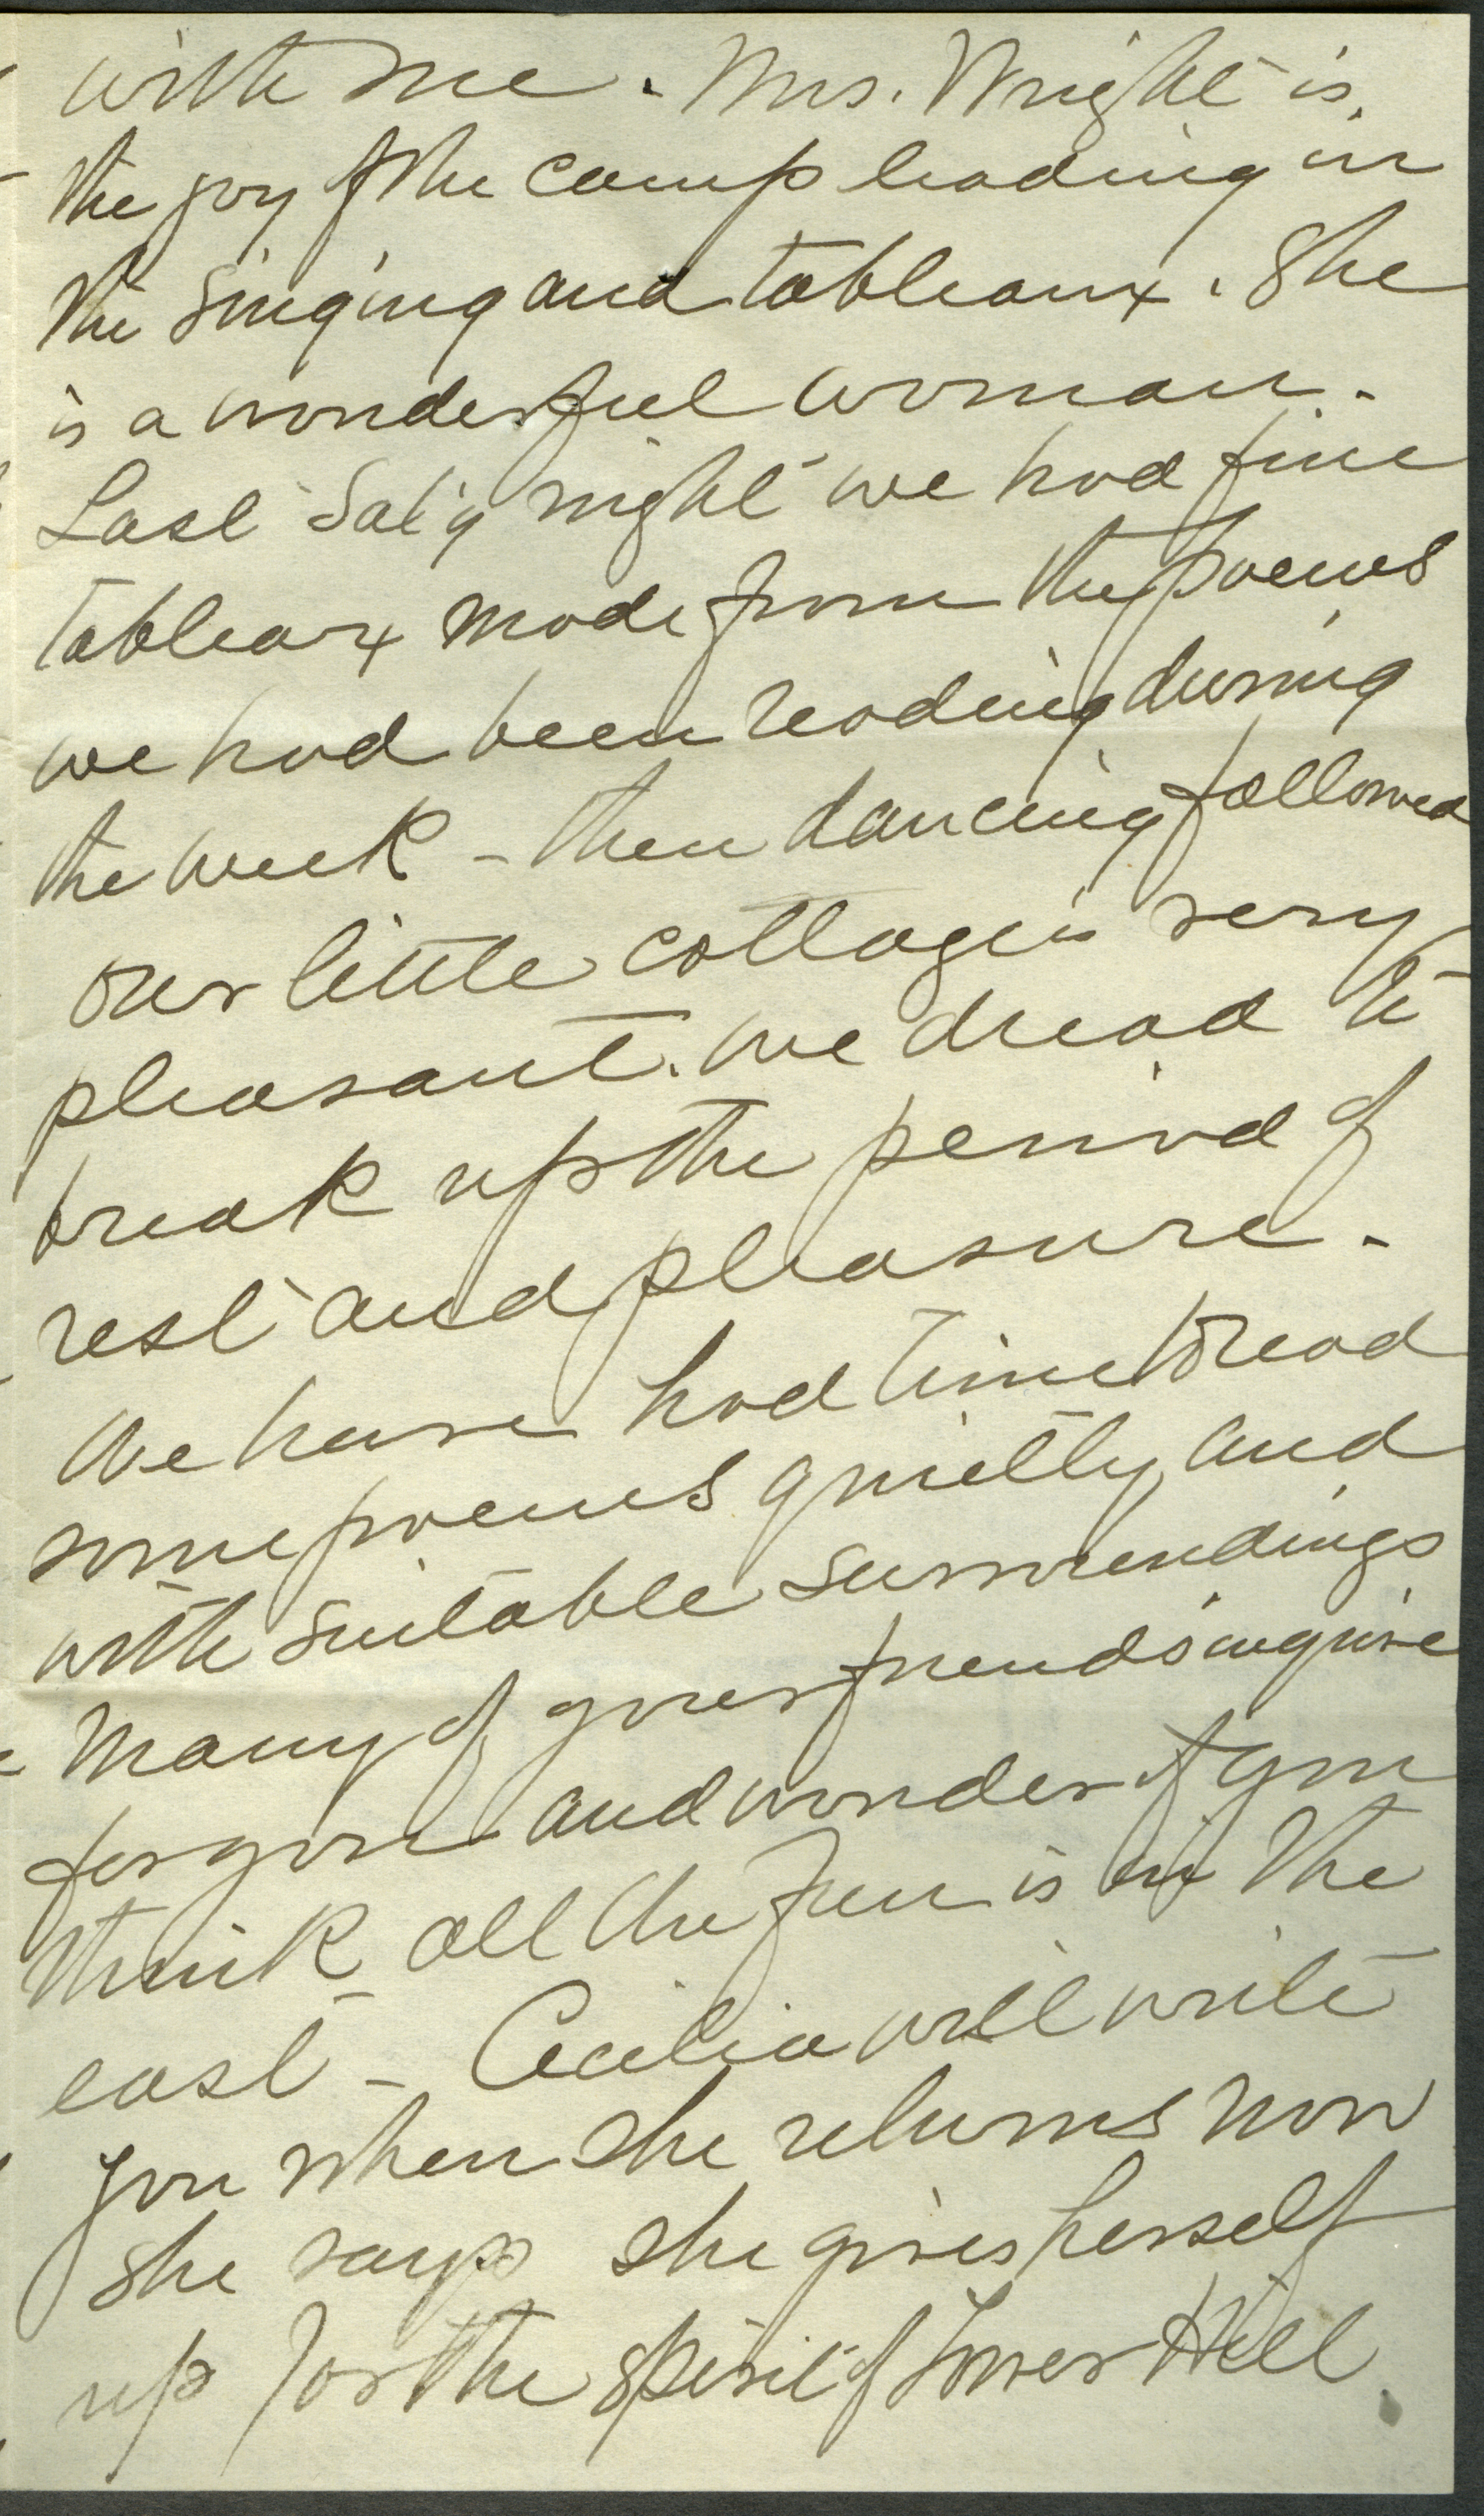 with me. Mrs. Wright is
the joy of the camp leading in
the singing and tableaux. She
is a wonderful woman.
Last Sat'y night we had fine
tableaux made from the poems
we had been reading during
the week - then dancing followed
Our little cottage is very
pleasant. We dread to
break up the period of
rest and pleasure.
We have had time to read
some poems quietly, and
with suitable surroundings
Many of your friends inquire
for you and wonder if you
think all the fun is in the
east - Cecilia will write
you when she returns now
she says she gives herself
up for the spirit of Tower Hill.